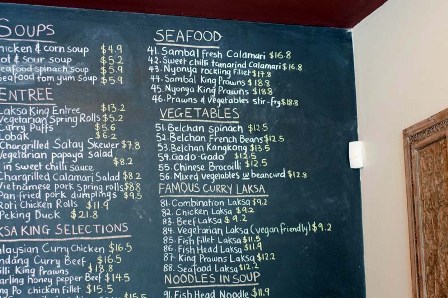 SOUPS
chicken & corn soup $4.9
hot & sour soup $5.2
Seafood spinach soup $5.9
Seafood tom yum soup $5.9
ENTREE
Laksa King Entree $13.2
Vegetarian Spring Rolls $5.2
Curry Puffs $5.6
Lobak $6.2
Chargrilled Satay Skewer $7.8
Vegetarian papaya Salad $8.2
in sweet chilli sauce
Chargrilled Calamari Salad $8.2
Vietnamese pork Spring rolls $8.8
Pan fried pork dumplings $9.5
Roti Chicken Rolls $11.9
Peking Duck $21.8
KSA KING SELECTIONS
alaysian Curry Chicken $16.5
ndang Curry Beef $16.5
illi King Prawns $18.8
arling honey pepper Beef $14.5
ng Po chicken fillet $15.5
SEAFOOD
41. Sambal fresh Calamari $16.8
42. Sweet chilli tamarind Calamari $16.8
43. Nyonya rockling fillet $17.8
44. Sambal King Prawns $18.8
45. Nyonya King Prawns $18.8
46. Prawns & Vegetables stir-fry $18.8
VEGETABLES
51. Belchan spinach $12.5
52. Belchan French Beans $12.5
53. Belchan Kangkong $13.5
54. Gado-Gado $12.5
55. Chinese Brocoilli $12.5
56. Mixed Vegetables w beancurd $12.8
FAMOUS CURRY LAKSA
81. Combination Laksa $9.2
82. Chicken Laksa $9.2
83. Beef Laksa $9.2
84. Vegetarian Laksa (vegan friendly) $9.2
85. Fish fillet Laksa $11.5
86. Fish Head Laksa $11.9
87. King Prawns Laksa $12.2
88. Seafood Laksa $12.2
NOODLES IN SOUP
91. Fish Head Noodle $11.9